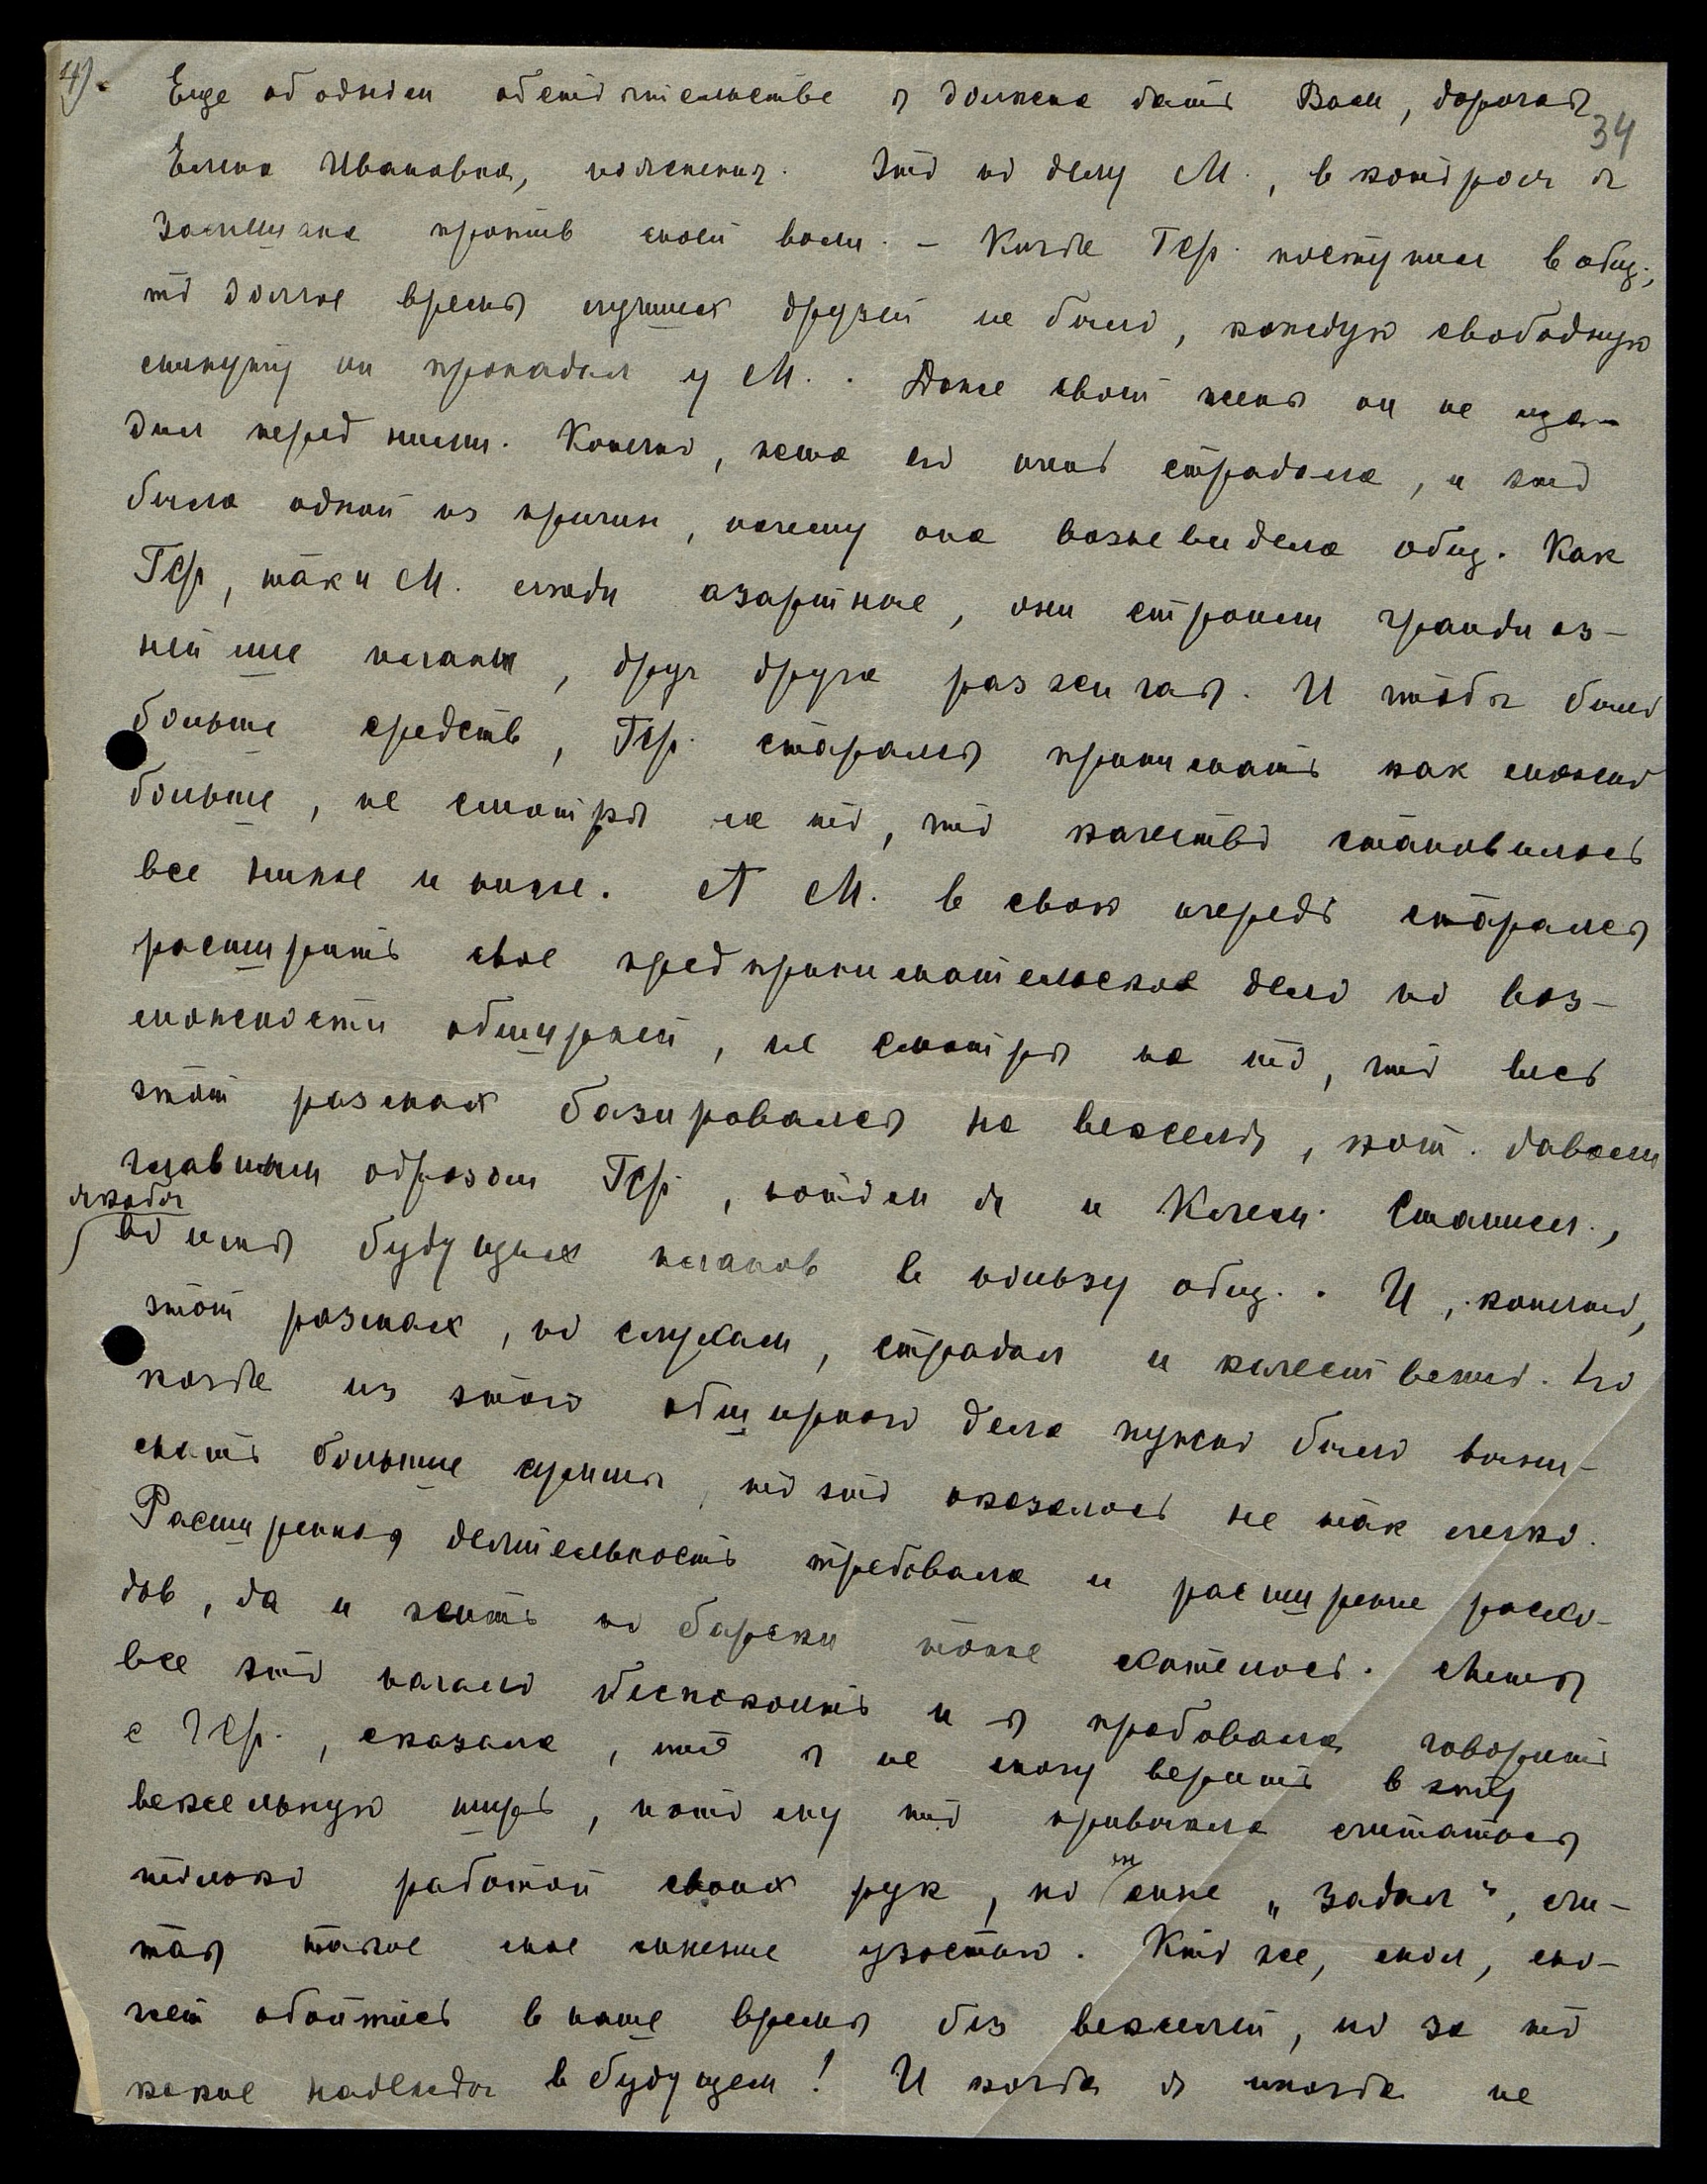 4).
34
Еще об одном обстоятельстве я должна дать Вам, дорогая
Елена Ивановна, пояснения. Это по делу М., в котором я
замешана против своей воли. – Когда Гер. поступил в общ.,
то долгое время лучших друзей не было, каждую свободную
минуту он пропадал у М.. Даже своей жены он не
дил перед ними. Конечно, жена его очень страдала, и это
была одной из причин, почему она возневидела общ. Как
Гер, так и М. люди азартные, они строили грандиоз-
нейшие планы, друг друга разжигая. И чтобы было
больше средств, Гер. старался принимать как можно
больше, не смотря на то, что качество становилось
все ниже и ниже. А М. в свою очередь старался
расширить свое предпринимательское дело по воз-
можности обширней, не смотря на то, что весь
этот размах базировался на векселя, кот. давали
главным образом Гер., потом я и Клем. Станисл.,
якобы
во имя будущих планов в пользу общ.. И, конечно,
этот размах, по слухам, страдал и качественно. Но
когда из этого обширного дела нужно было выни-
мать большие суммы, то это оказалось не так легко.
Расширенная деятельность требовала и расширение расхо-
дов, да и жить по барски тоже хотелось. Меня
все это начало беспокоить и я пробовала говорить
с Гер., сказала, что я не могу верить в эту
вексельную ширь, потому что привыкла считаться
только работой своих рук, но
он
мне „задал“, счи-
тая такое мое мнение узостью. Кто же, мол, мо-
жет обойтись в наше время без векселей, но за то
какие надежды в будущем! И когда я иногда не